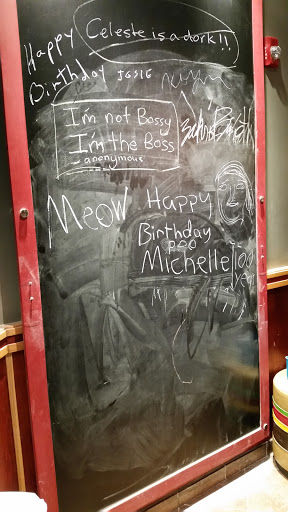 Happy
Birthday
Celeste is a dork!!
I'm not Bossy
I'm the Boss
- anonymous
Meow
Happy
Birthday
Michelle